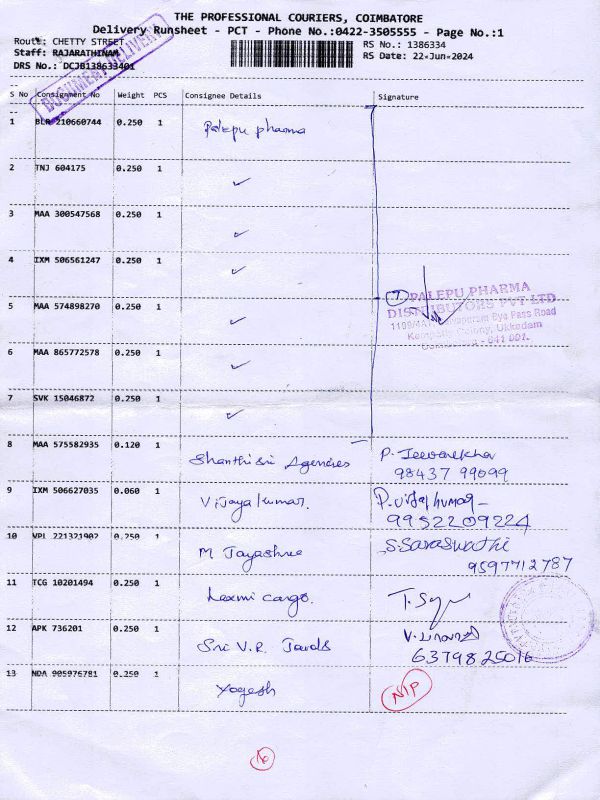 THE PROFESSIONAL COURIERS, COIMBATORE
Delivery Runsheet - PCT - Phone No.:0422-3505555 - Page No.:1
Route: CHETTY STREET
RS No.: 1386334
Staff: RAJARATHINAM
RS Date: 22-Jun-2024
DRS No.: DCJB138633401
DOCUMENT DELIVERY
S No Consignment No Weight PCS Consignee Details Signature
1 BLR 210660744 0.250 1 Palepu pharma
2 TNJ 604175 0.250 1 ✓
3 MAA 300547568 0.250 1 ✓
4 IXM 506561247 0.250 1 ✓
7 PALEPU PHARMA
DISTRIBUTORS PVT LTD
Bye Pass Road
Colony, Ukkadam
- 641 001.
5 MAA 574898270 0.250 1 ✓
6 MAA 865772578 0.250 1 ✓
7 SVK 15046872 0.250 1 ✓
8 MAA 575582935 0.120 1 Shanthi Sri Agencies P. Jeevarekha
98437 99099
9 IXM 506627035 0.060 1 Vijaya kumar. P. Vijaykumar
9952209224
10 VPL 221321902 0.250 1 M Jayashree S Saraswathi
9597712787
11 TCG 10201494 0.250 1 Laxmi cargo.
12 APK 736201 0.250 1 Sri V.R.
6379825016
13 NDA 905976781 0.250 1 Yogesh N/P